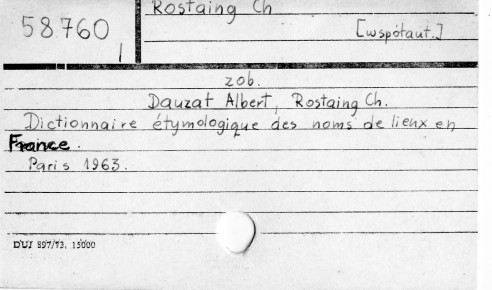 Rostaing Ch
58760
[współaut.]
I
zob.
Dauzat Albert, Rostaing Ch.
Dictionnaire étymologique des noms de lieux en
France.
Paris 1963.
DUJ 897/73. 15000